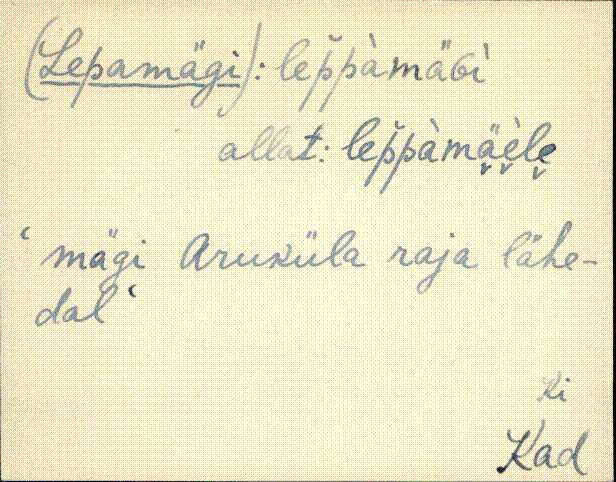 (Lepamägi): lep̆pàmäɢì
allat: lep̆pàmä̬è̬le̬
‘mägi Aruküla raja lähe-
dal‘
Ki
Kad